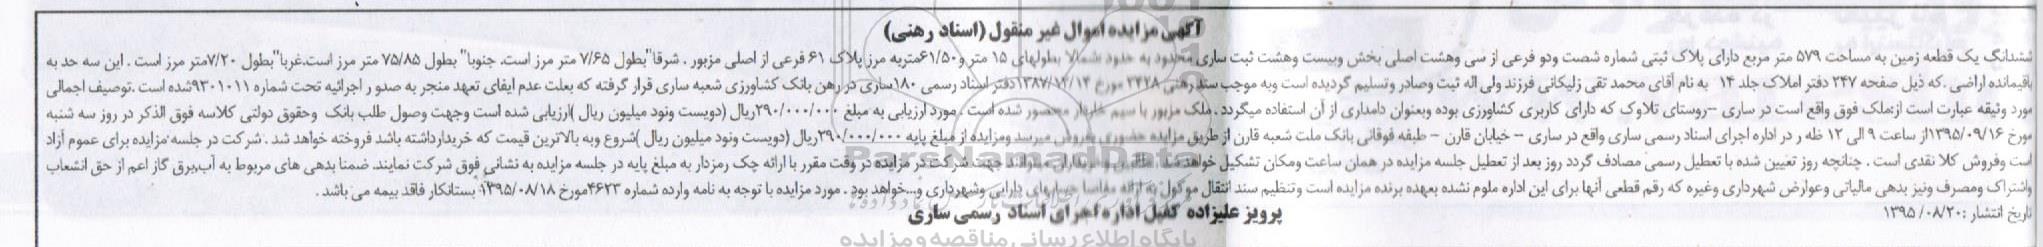 آگهی مزایده اموال غیر منقول (اسناد رهنی)
ششدانگ یک قطعه زمین به مساحت ۵۷۹ متر مربع دارای پلاک ثبتی شماره شصت ودو فرعی از سی وهشت اصلی بخش وبیست وهشت ثبت ساری محدود به حدود شمالا بطولهای ۱۵ متر و۶۱/۵۰متربه مرز پلاک ۶۱ فرعی از اصلی مزبور . شرقا"بطول ۷/۶۵ متر مرز است. جنوبا" بطول ۷۵/۸۵ متر مرز است.غربا"بطول ۷/۲۰متر مرز است . این سه حد به
باقیمانده اراضی .که ذیل صفحه ۲۴۷ دفتر املاک جلد ۱۴ به نام آقای محمد تقی زلیکانی فرزند ولی اله ثبت وصادر وتسلیم گردیده است وبه موجب سند رهنی ۳۴۲۸ مورخ ۱۳۸۷/۱۲/۱۴دفتر اسناد رسمی ۱۸۰ساری در رهن بانک کشاورزی شعبه ساری قرار گرفته که بعلت عدم ایفای تعهد منجر به صدو ر اجرائیه تحت شماره ۹۳۰۱۰۱۱شده است .توصیف اجمالی
مورد وثیقه عبارت است ازملک فوق واقع است در ساری –روستای تلاوک که دارای کاربری کشاورزی بوده وبعنوان دامداری از آن استفاده میگردد . ملک مزبور با سیم خاردار محصور شده است . مورد ارزیابی به مبلغ ۲۹۰/۰۰۰/۰۰۰ریال (دویست ونود میلیون ریال )ارزیابی شده است وجهت وصول طلب بانک وحقوق دولتی کلاسه فوق الذکر در روز سه شنبه
مورخ ۱۳۹۵/۰۹/۱۶از ساعت ۹ الی ۱۲ ظه ر در اداره اجرای اسناد رسمی ساری واقع در ساری – خیابان قارن – طبقه فوقانی بانک ملت شعبه قارن از طریق مزایده حضوری بفروش میرسد ومزایده از مبلغ پایه ۲۹۰/۰۰۰/۰۰۰ریال (دویست ونود میلیون ریال )شروع وبه بالاترین قیمت که خریدارداشته باشد فروخته خواهد شد . شرکت در جلسه مزایده برای عموم آزاد
است وفروش کلا نقدی است . چنانچه روز تعیین شده با تعطیل رسمی مصادف گردد روز بعد از تعطیل جلسه مزایده در همان ساعت ومکان تشکیل خواهد شد . طالبین و خریداران میتوانند جهت شرکت در مزایده در وقت مقرر با ارائه چک رمزدار به مبلغ پایه در جلسه مزایده به نشانی فوق شرکت نمایند. ضمنا بدهی های مربوط به آب،برق گاز اعم از حق انشعاب
واشتراک ومصرف ونیز بدهی مالیاتی وعوارض شهرداری وغیره که رقم قطعی آنها برای این اداره ملوم نشده بعهده برنده مزایده است وتنظیم سند انتقال موکول به ارائه مفاصا حسابهای دارایی وشهرداری و...خواهد بود . مورد مزایده با توجه به نامه وارده شماره ۴۶۲۳مورخ ۱۳۹۵/۰۸/۱۸ بستانکار فاقد بیمه می باشد .
تاریخ انتشار :۱۳۹۵/۰۸/۲۰
پرویز علیزاده کفیل اداره اجرای اسناد رسمی ساری
ParsNamadData
پایگاه اطلاع رسانی مناقصه و مزایده